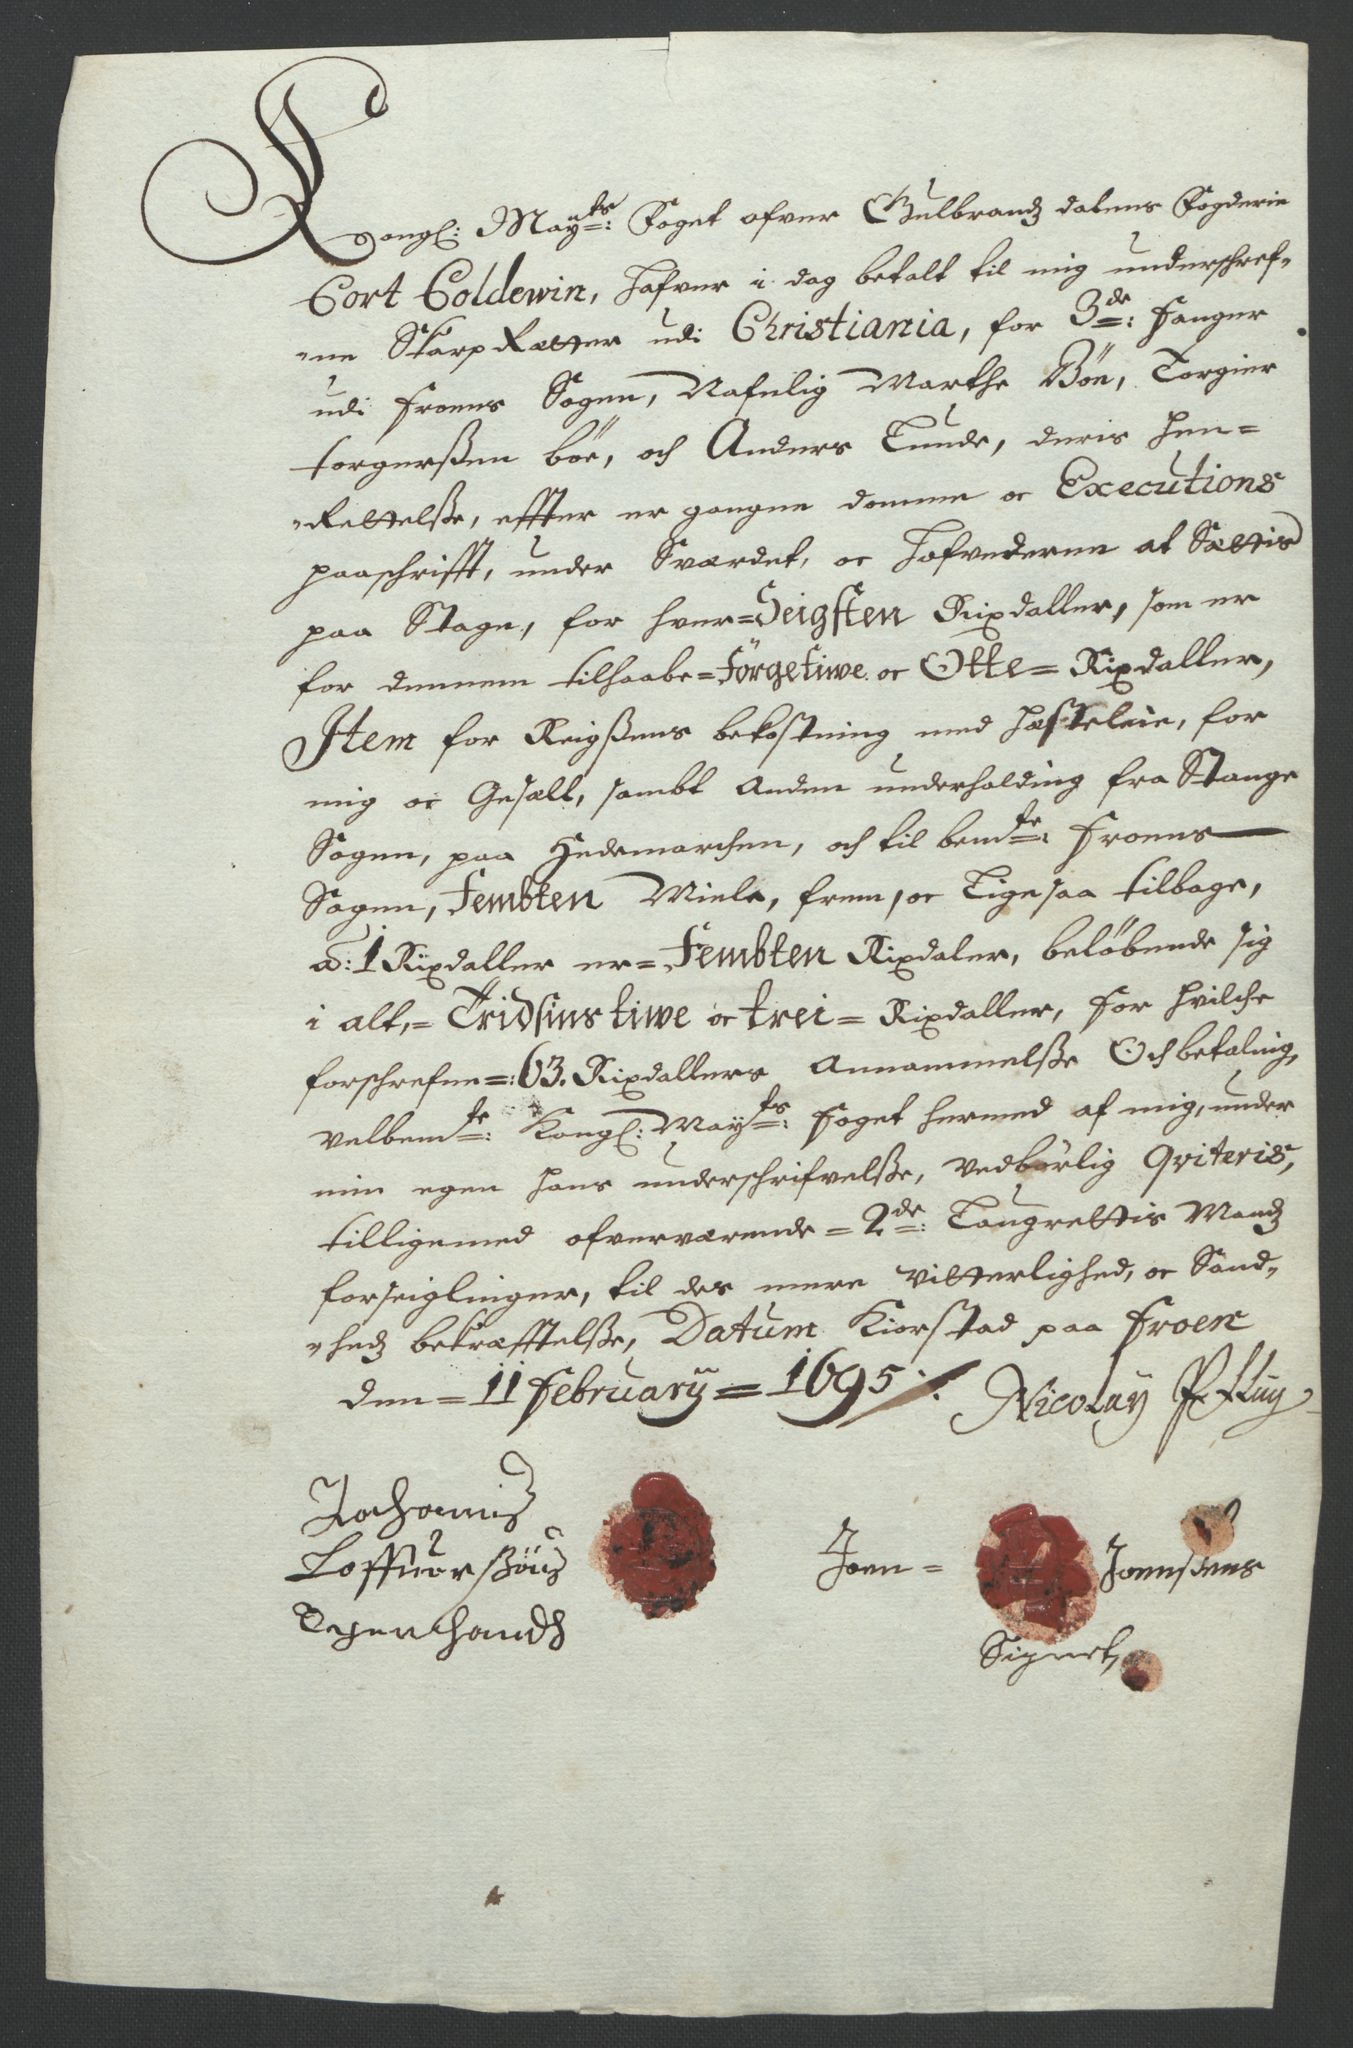 Kongl: May:ts Foget ofver Gulbrandz dalens Fogderie
Cort Coldewin, hafver i dag betalt til mig underschref-
-ne Skarp Rætter udi Christiania, for 3de: Fanger
udi Froens Sogen, Nafnlig Marthe Bön, Torgier
torgerßen böe, och Anders Lunde, deris hen=
-Rettelße, effter er gangne domme oc Executions
paaschrifft, under Sværdet, oc hofvederne at Sættis
paa Stage, for hver=Seigsten Rixdaller, som er
for dennem tilhaabe=Förgetiwe oc Otte=Rixdaller,
Item for Reigßens bekostning med hæsteleie, for
mig oc Gesæll, sambt anden underholding fra Stange
Sogen, paa Hedemarchen, och til bemte: Froens
Sogen, Fembten Miele, frem, oc Ligesaa tilbage,
a: 1 Rixdaller er=Fembten Rixdaler, beløbende sig
i alt,=Tridsinstiwe oc trei=Rixdaller, for hvilche
forschrefne=:63. Rixdallers Annammelße Och betaling,
velbemte: Kongl: May:ts Foget hermed af mig, under
min egen hans underschrifvelße, vedbörlig Qviteris,
tilligemed ofverværende=2de: Laugrettis Mandz
forseiglinger, til des mere vitterlighed, oc Sand-
-hedz bekræfftelße, Datum Kiorstad paa Froen
den=11 February=1695 ./.
Nicolay Pflug
Johannis
Loffuorßönz
Egen handt
Joen= Joenßens
Signet,